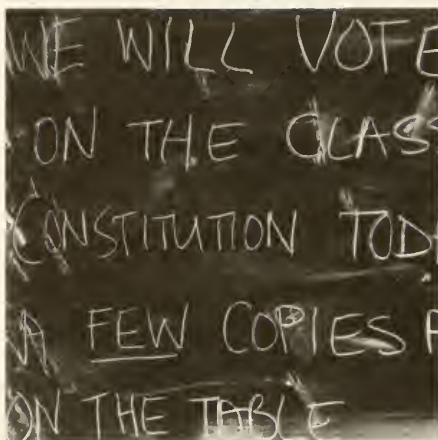 WE WILL VOTE
ON THE CLASS
CONSTITUTION TOD
A FEW COPIES
ON THE TABLE